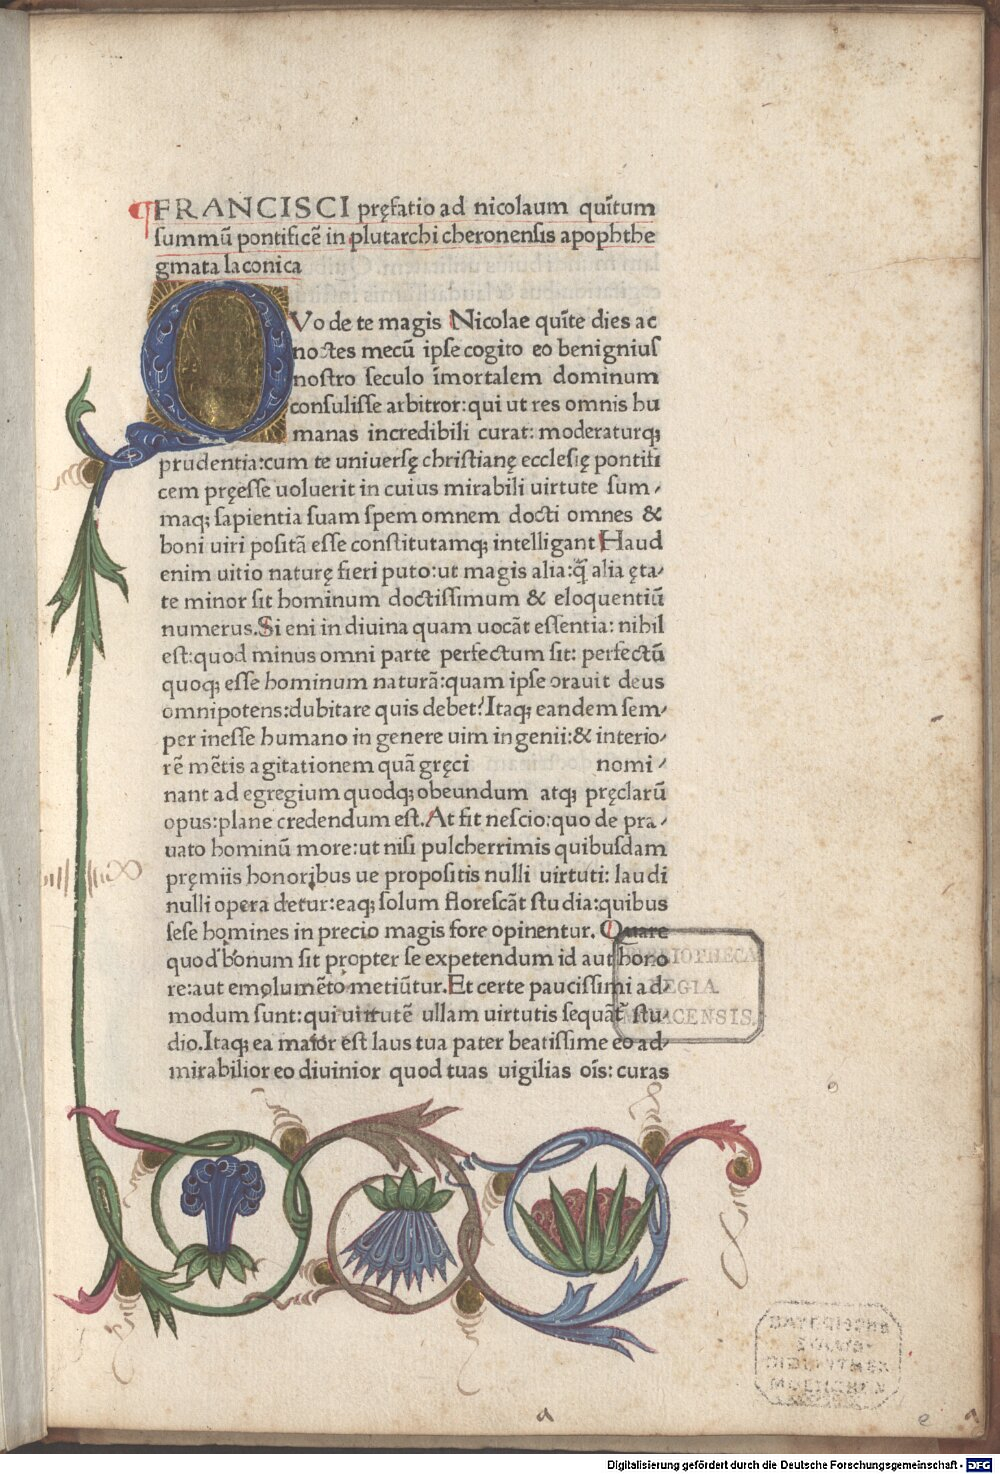 FRANCISCI pręfatio ad nicolaum quītum
ſummū pontificē in plutarchi cheronenſis apophthe
gmata laconica
QVo de te magis Nicolae quīte dies ac
noctes mecū ipſe cogito eo benignius
noſtro ſeculo īmortalem dominum
conſuliſſe arbitror: qui ut res omnis hu
manas incredibili curat: moderaturqꝫ
prudentia: cum te uniuerſę chriſtianę eccleſię pontifi
cem pręeſſe uoluerit in cuius mirabili uirtute ſum⸗
maqꝫ ſapientia ſuam ſpem omnem docti omnes &
boni uiri poſitā eſſe conſtitutamqꝫ intelligant Haud
enim uitio naturę fieri puto: ut magis alia: q̃ alia ęta⸗
te minor ſit hominum doctiſſimum & eloquentiū
numerus. Si eni in diuina quam uocāt eſſentia: nihil
eſt: quod minus omni parte perfectum ſit: perfectū
quoqꝫ eſſe hominum naturā: quam ipſe orauit deus
omnipotens: dubitare quis debet? Itaqꝫ eandem ſem⸗
per ineſſe humano in genere uim ingenii: & interio⸗
rē mētis agitationem quā gręci nomi⸗
nant ad egregium quodqꝫ obeundum atqꝫ pręclarū
opus: plane credendum eſt. At fit neſcio: quo de pra⸗
uato hominū more: ut niſi pulcherrimis quibuſdam
pręmiis honoribus ue propoſitis nulli uirtuti: laudi
nulli opera detur: eaqꝫ ſolum floreſcāt ſtudia: quibus
ſeſe homines in precio magis fore opinentur. Quare
quod bonum ſit propter ſe expetendum id aut hono
re: aut emolumēto metiūtur. Et certe pauciſſimi ad⸗
modum ſunt: qui uirtutē ullam uirtutis ſequāt̃ ſtu⸗
dio. Itaqꝫ ea maior eſt laus tua pater beatiſſime eo ad⸗
mirabilior eo diuinior quod tuas uigilias oīs: curas
BIBLIOTHECA
REGIA
MONACENSIS.
a
e
Digitalisierung gefördert durch die Deutsche Forschungsgemeinschaft - DFG